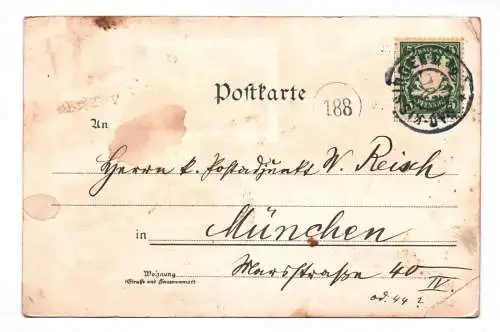 Postkarte
188
An
Herrn k. Postadjunkt W. Reisch
in München
Wohnung
(Straße und Hausnummer)
Marsstraße 40
IV.
od. 44 ?